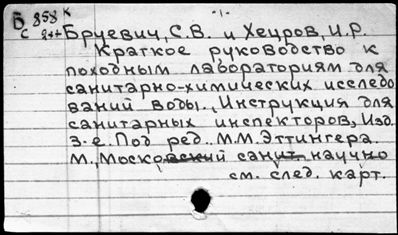 -1-
Б 858 к
с 2++ Бруевич, С.В. и Хецров, И.Р.
Краткое руководство к
походным лабораториям для
санитарно-химических исследо
ваний воды. Инструкция для
санитарных инспекторов, Изд.
3-е. Под ред. М.М. Эттингера.
М., Московский санит. научно
см. след. карт.